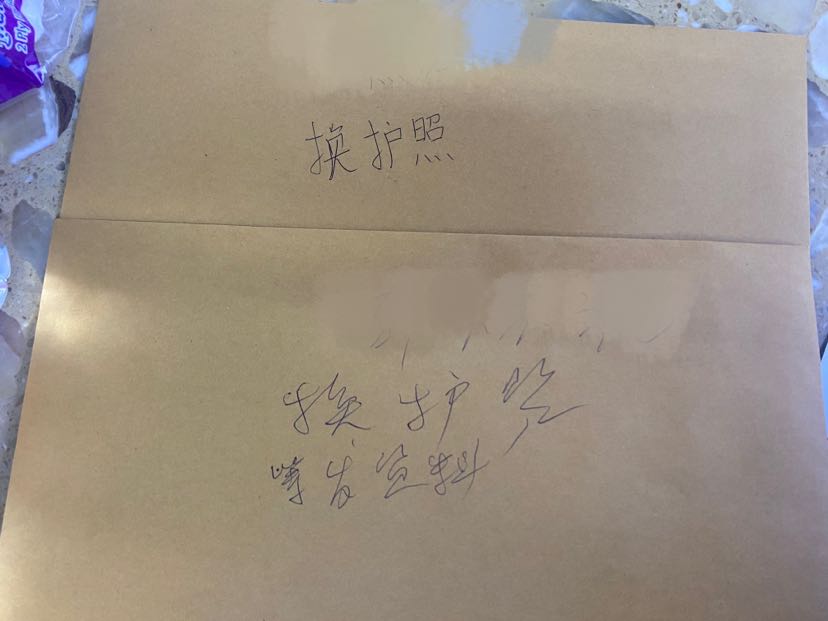 2 Ply
换护照
换护照
资料